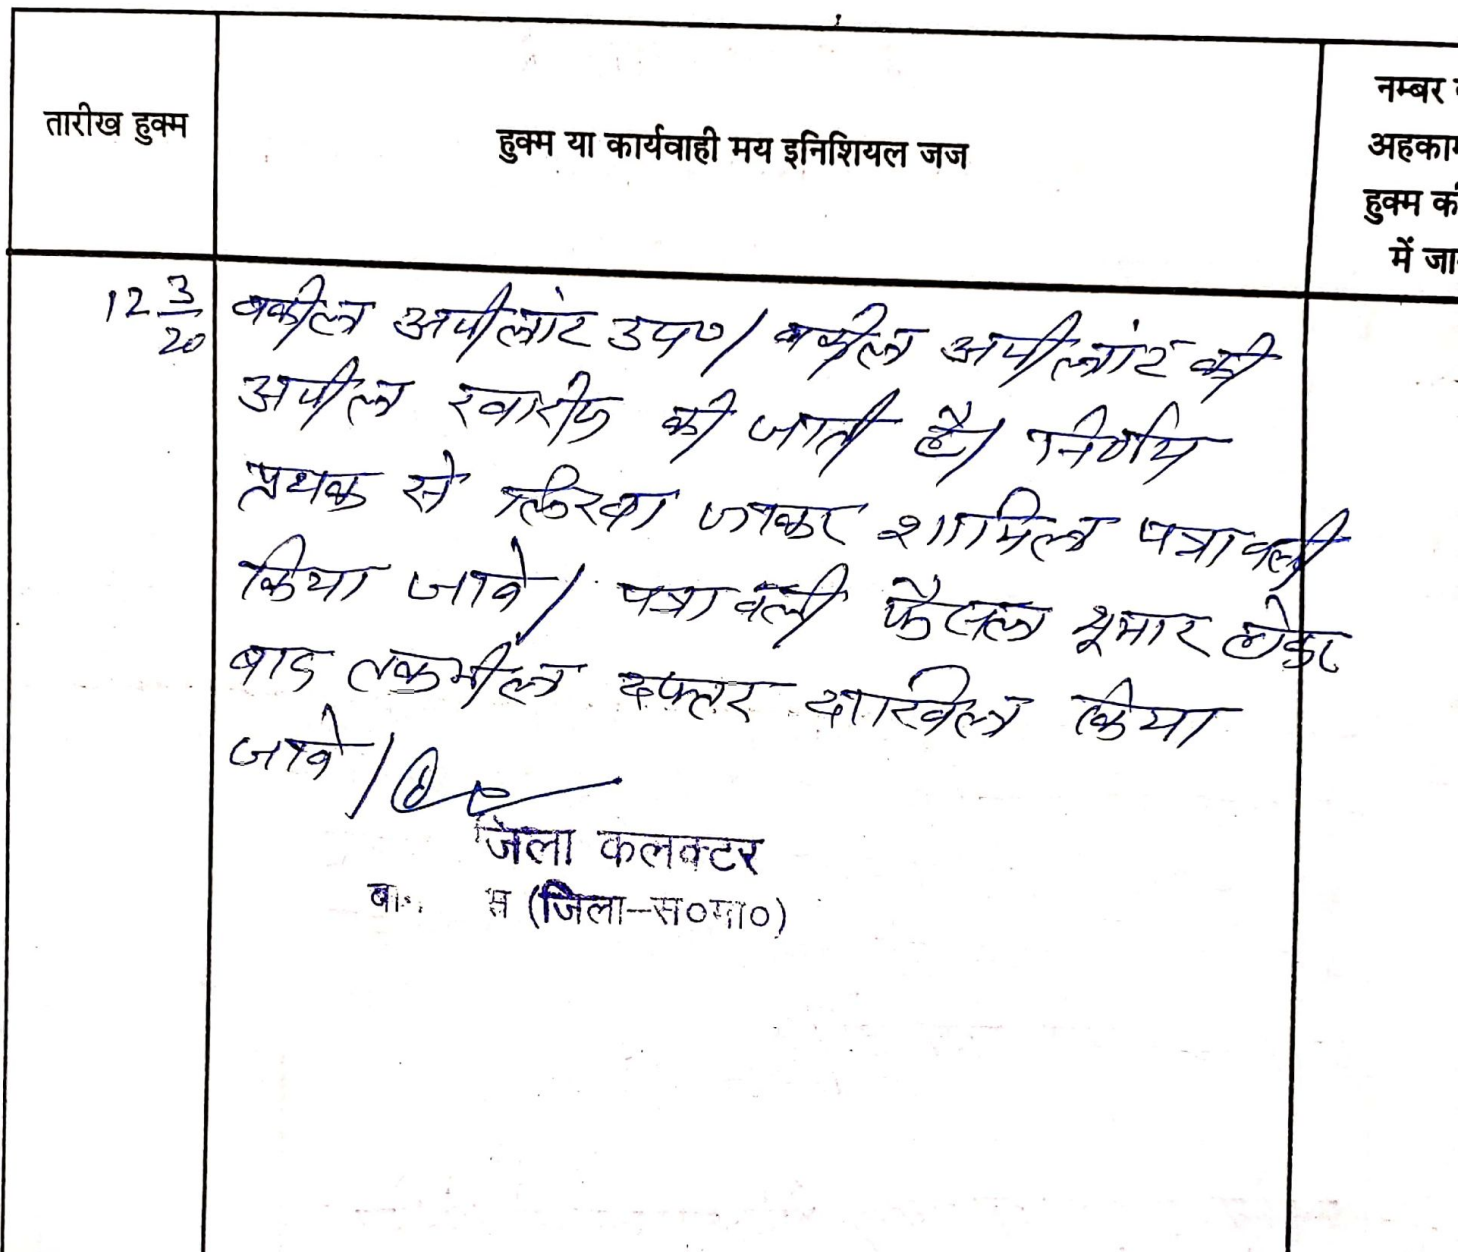 तारीख हुक्म
हुक्म या कार्यवाही मय इनिशियल जज
नम्बर
अहकाम
हुक्म की
में जा
12 3/20
वकील अपीलांट उप०। वकील अपीलांट की
अपील खारीज की जाती है। निर्णय
प्रथक से लिखा जाकर शामिल पत्रावली
किया जावे। पत्रावली फैसल शूमार होकर
बाद तकमील दफ्तर दाखिल किया
जावे।
जिला कलक्टर
(जिला-स०मा०)